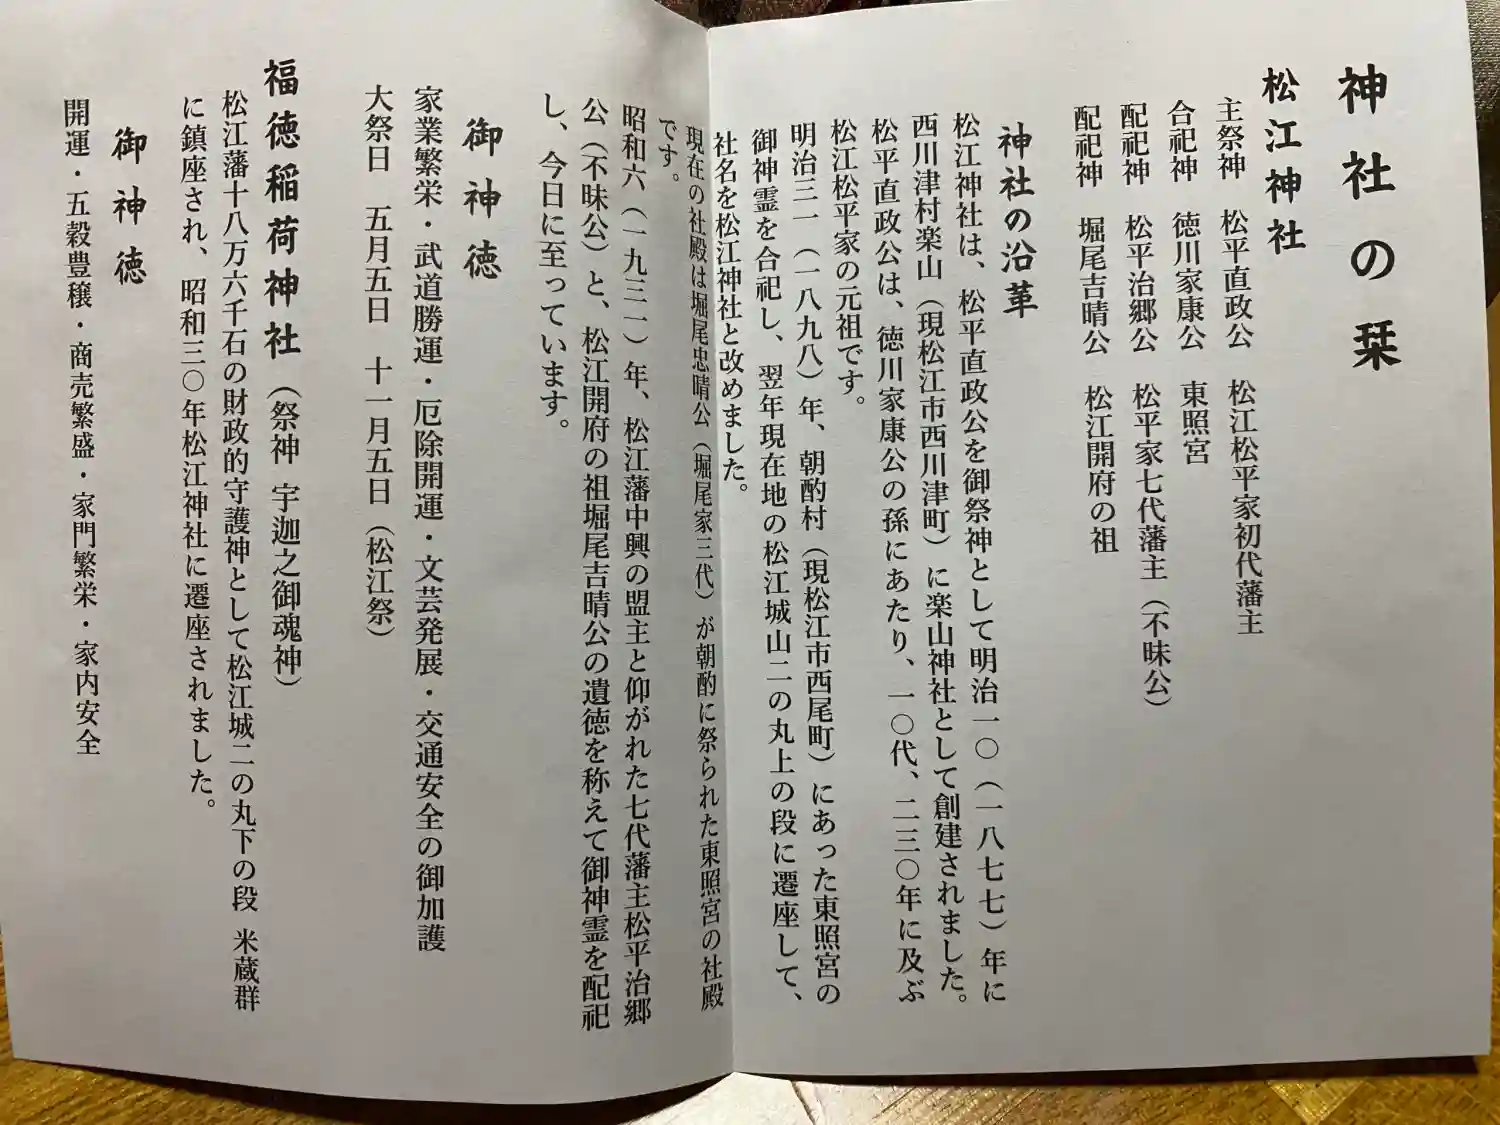 神社の栞
松江神社
主祭神　松平直政公　松江松平家初代藩主
合祀神　徳川家康公　東照宮
配祀神　松平治郷公　松平家七代藩主（不昧公）
配祀神　堀尾吉晴公　松江開府の祖
神社の沿革
松江神社は、松平直政公を御祭神として明治一〇（一八七七）年に
西川津村楽山（現松江市西川津町）に楽山神社として創建されました。
松平直政公は、徳川家康公の孫にあたり、一〇代、二三〇年に及ぶ
松江松平家の元祖です。
明治三一（一八九八）年、朝酌村（現松江市西尾町）にあった東照宮の
御神霊を合祀し、翌年現在地の松江城山二の丸上の段に遷座して、
社名を松江神社と改めました。
現在の社殿は堀尾忠晴公（堀尾家三代）が朝酌に祭られた東照宮の社殿
です。
昭和六（一九三一）年、松江藩中興の盟主と仰がれた七代藩主松平治郷
公（不昧公）と、松江開府の祖堀尾吉晴公の遺徳を称えて御神霊を配祀
し、今日に至っています。
御神徳
家業繁栄・武道勝運・厄除開運・文芸発展・交通安全の御加護
大祭日　五月五日　十一月五日（松江祭）
福徳稲荷神社（祭神 宇迦之御魂神）
松江藩十八万六千石の財政的守護神として松江城二の丸下の段 米蔵群
に鎮座され、昭和三〇年松江神社に遷座されました。
御神徳
開運・五穀豊穣・商売繁盛・家門繁栄・家内安全